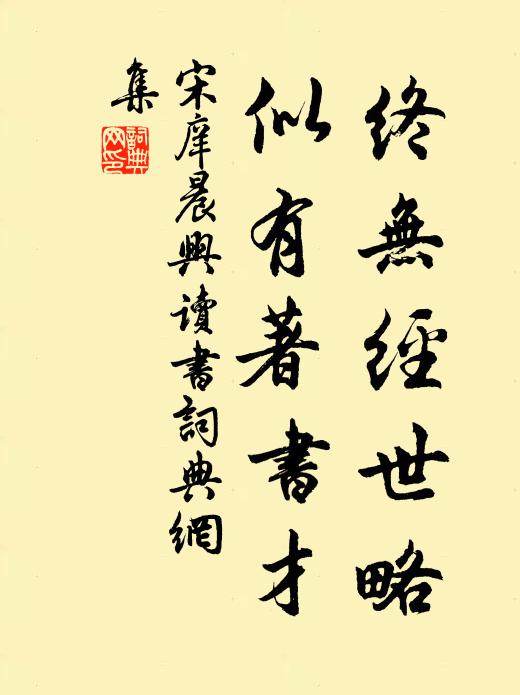 終無經世略
似有著書才
宋庠晨興讀書詞典網
集
詞典網印